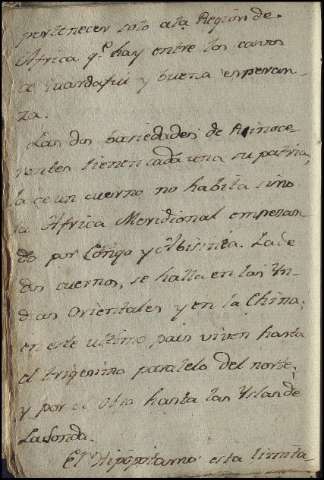 pertenecer solo ala Region de
Africa q.e hay entre los cavos
de Guardafú y buena esperan-
za.
Las dos bariedades de Rinoce
rontes tienen cada una su patria,
la de un cuerno no habita sino
la Africa Meridional empezan
do por Cóngo y Abisinia. La de
dos cuernos, se halla en las Yn
dias Orientales y en la China;
en este ultimo pais viven hasta
el trigesimo paralelo del norte,
y por el otro hasta las Yslas de
La Sonda.
El Hipopótamo esta limita